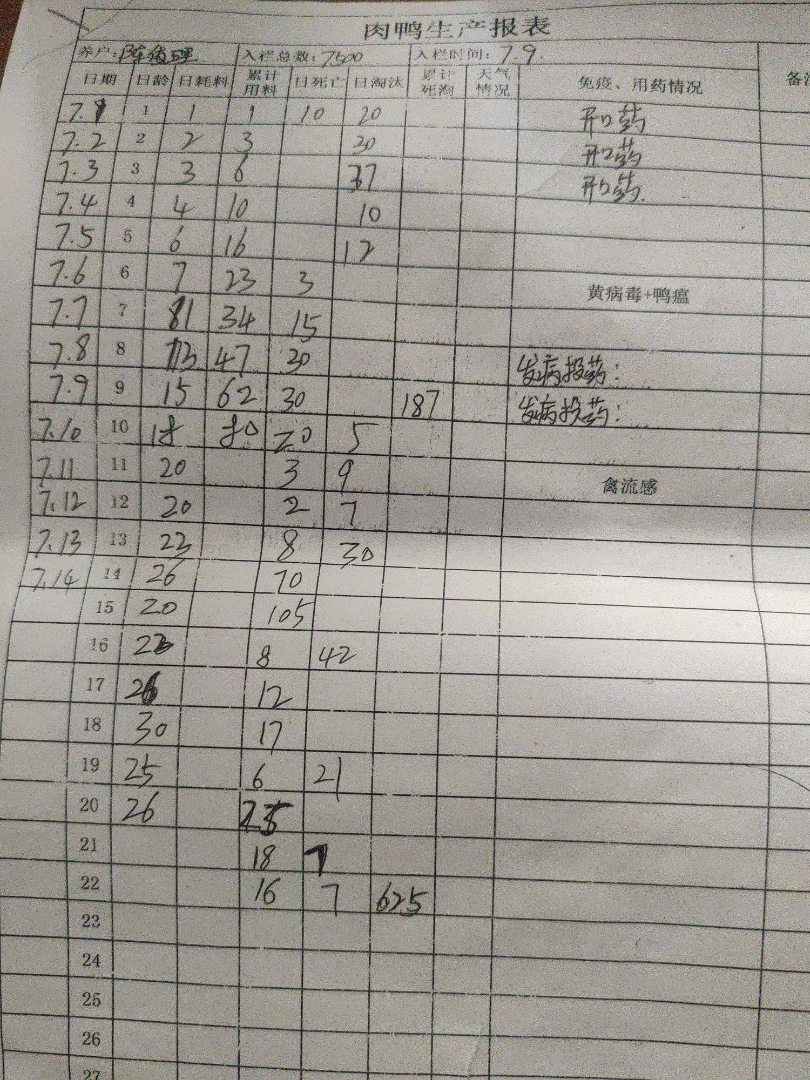 肉鸭生产报表
养户: 陈 入栏总数: 7500 入栏时间: 7.9.
日期 日龄 日耗料 累计用料 日死亡 日淘汰 累计死淘 天气情况 免疫、用药情况 备注
7.1 1 1 1 10 20 开口药
7.2 2 2 3 20 开口药
7.3 3 3 6 37 开口药
7.4 4 4 10 10
7.5 5 6 16 12
7.6 6 7 23 3 黄病毒+鸭瘟
7.7 7 11 34 15
7.8 8 13 47 30 发病投药:
7.9 9 15 62 30 187 发病投药:
7.10 10 18 80 20 5
7.11 11 20 3 9 禽流感
7.12 12 20 2 7
7.13 13 23 8 30
7.14 14 26 70
15 20 105
16 23 8 42
17 26 12
18 30 17
19 25 6 21
20 26 25
21 18 7
22 16 7 625
23
24
25
26
27